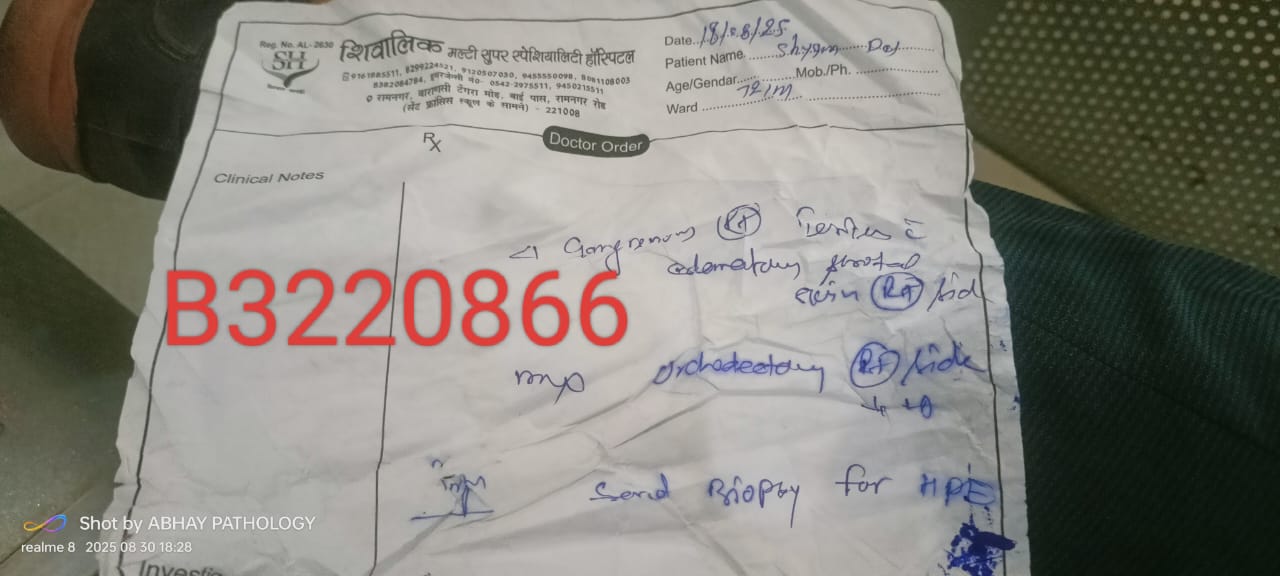 Reg. No. AL- 2630
SH
शिवालिक मल्टी सुपर स्पेशियालिटी हॉस्पिटल
9161885511, 8299224521, 9120507030, 9455550098, 8081108003
8382084784, इमरजेंसी नं०- 0542-2975511, 9450215511
रामनगर, वाराणसी टेंगरा मोड़, बाई पास, रामनगर रोड
(सेंट फ्रांसिस स्कूल के सामने) - 221008
Date. 18/08/25
Patient Name. Shyam
Age/Gender. 72/M Mob./Ph.
Ward
Rx
Doctor Order
Clinical Notes
Gangrenous Rt Testes c̄
edematous
Rt Sid
B3220866
orchedectomy Rt Side
Send Biopsy for HPE
Shot by ABHAY PATHOLOGY
realme 8 2025 08 30 18:28